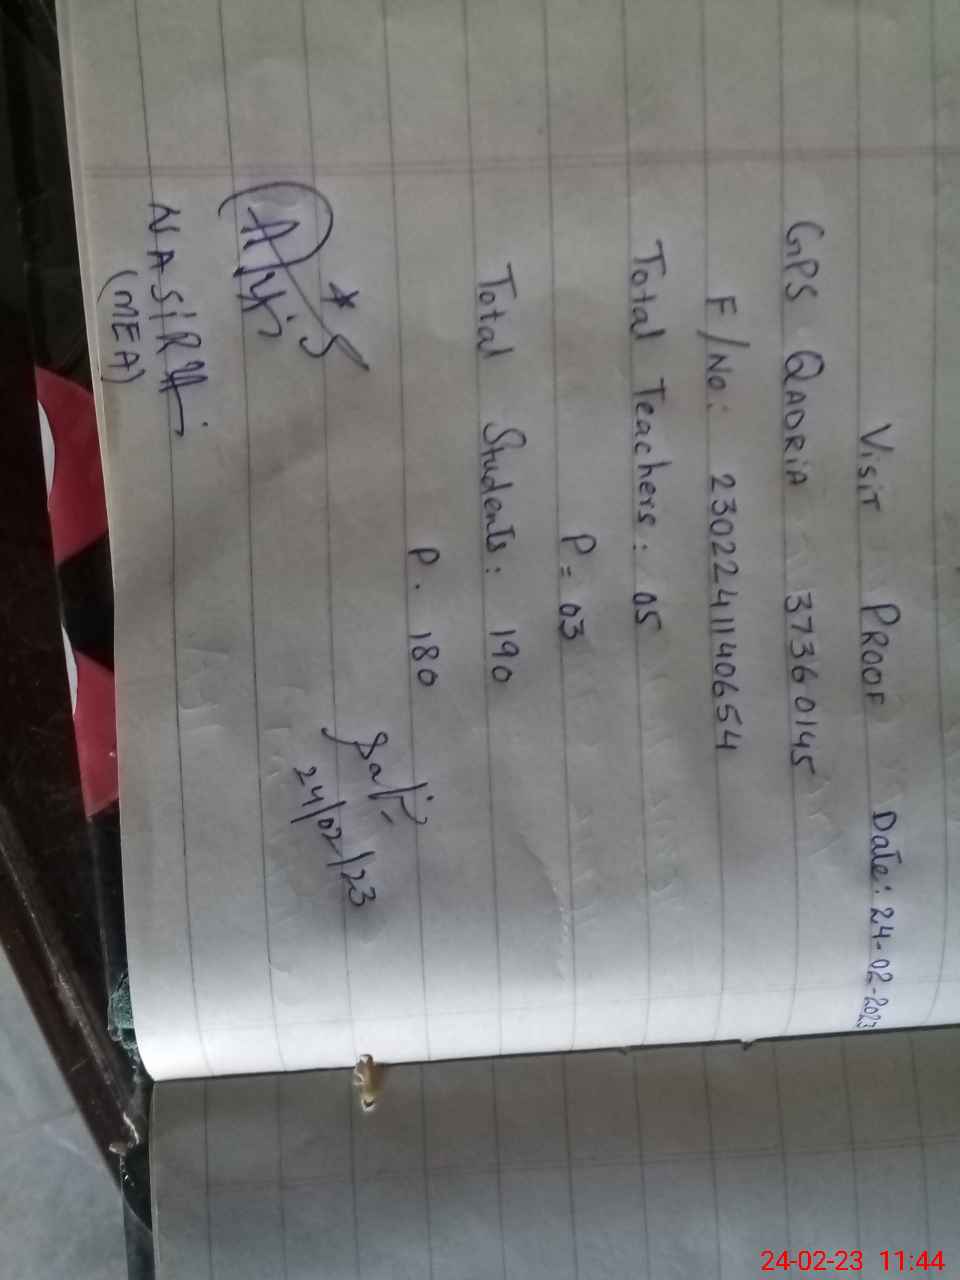 Visit PROOF Date: 24-02-2023
GPS QADRiA 37360145
F/No: 2302241140654
Total Teachers: 05
P = 03
Total Students: 190
P. 180
24/02/23
NASiR
(MEA)
24-02-23 11:44